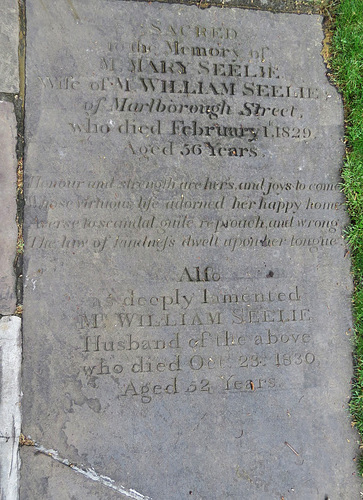 SACRED
to the Memory of
Mrs MARY SEELIE
Wife of Mr WILLIAM SEELIE
of Marlborough Street,
who died February 1, 1829
Aged 56 Years.
Honour and strength are hers, and joys to come
Whose virtuous life adorned her happy home
Averse to scandal, guile, reproach, and wrong
The law of kindneſs dwelt upon her tongue
Alſo
as deeply lamented
Mr WILLIAM SEELIE
Husband of the above
who died Oct. 23, 1830
Aged 52 Years.